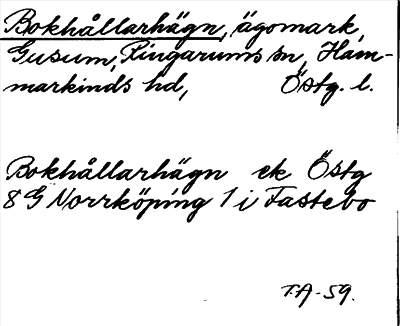 Bokhållarhägn, ägomark,
Gusum, Ringarums sn, Ham-
markinds hd, Östg. l.
Bokhållarhägn ek Östg
8G Norrköping 1 i Fastebo
T.A-59.